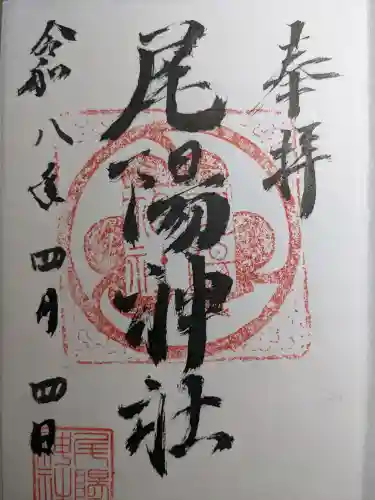 奉拝
尾陽神社
令和八年四月四日
尾陽
神社